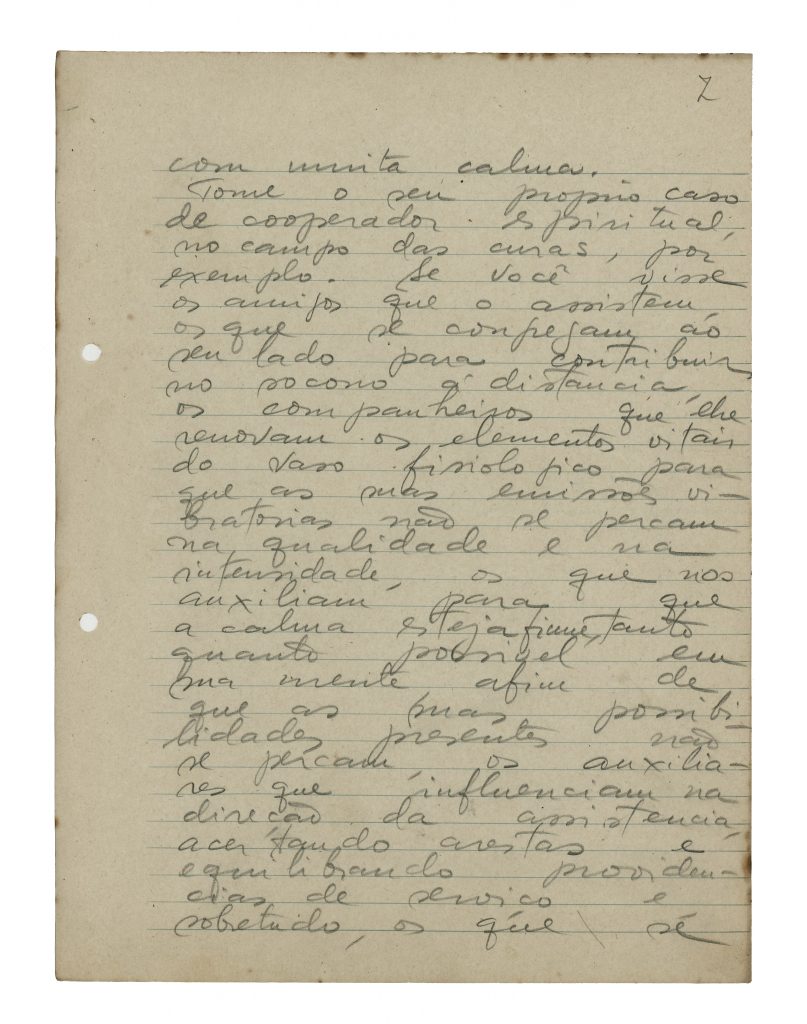 7
com muita calma.
Tome o seu proprio caso
de cooperador espiritual,
no campo das curas, por
exemplo. Se você visse
os amigos que o assistem,
os que se congregam ao
seu lado para contribuir
no socorro á distancia,
os companheiros que lhe
renovam os elementos vitais
do vaso fisiologico para
que as suas emissões vi-
bratorias não se percam
na qualidade e na
intensidade, os que nos
auxiliam para que
a calma esteja firme, tanto
quanto possivel, em
sua mente afim de
que as suas possibi-
lidades presentes não
se percam, os auxilia-
res que influenciam na
direcão da assistencia,
acertando arestas e
equilibrando providen-
cias de servico e
sobretudo, os que se